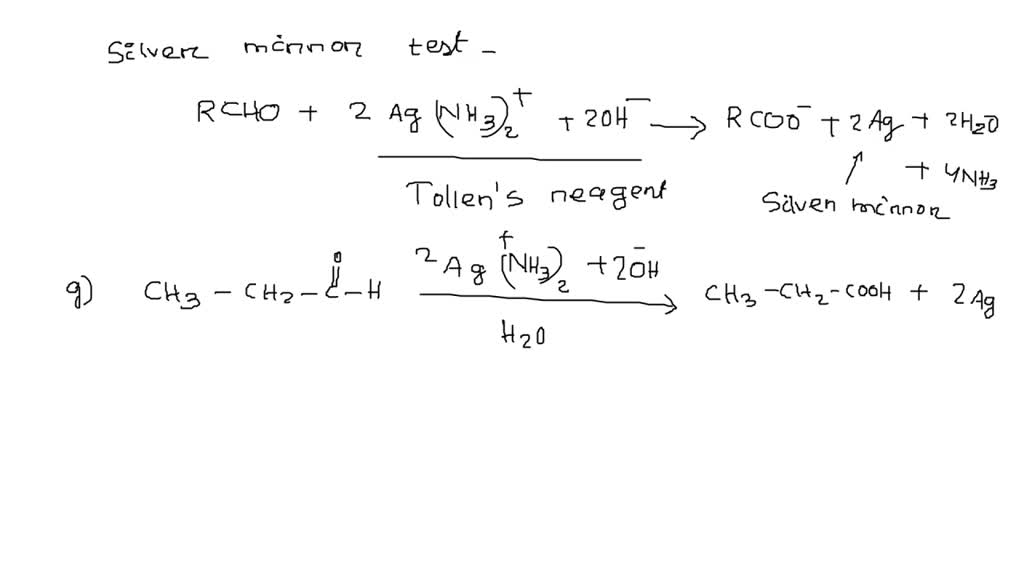 Silver mirror test -
RCHO + 2 Ag(NH3)2+ + 2OH− → RCOO− + 2Ag + 2H2O
+ 4NH3
Tollen's reagent
Silver mirror
g) CH3 - CH2 - C - H
O
2Ag(NH3)2+ + 2OH−
H2O
→ CH3 - CH2 - COOH + 2Ag